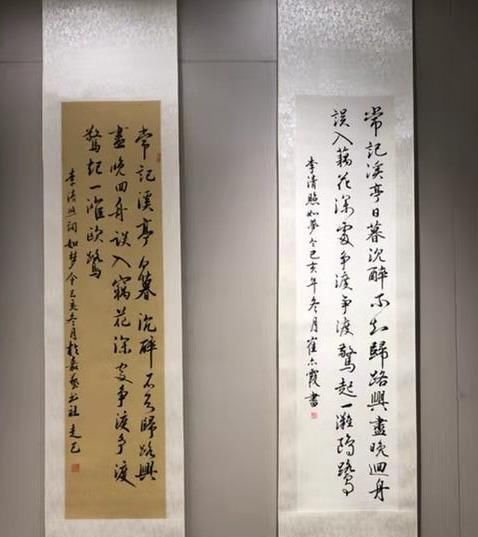 常記溪亭日暮沉醉不知歸路興盡晚迴舟
誤入藕花深處爭渡爭渡驚起一灘鷗鷺
李清照如夢令己亥年冬月崔亦霞書
常記溪亭日暮沉醉不知歸路興
盡晚回舟誤入藕花深處爭渡爭渡
驚起一灘欧鷺
李清照詞如梦令己亥冬月於